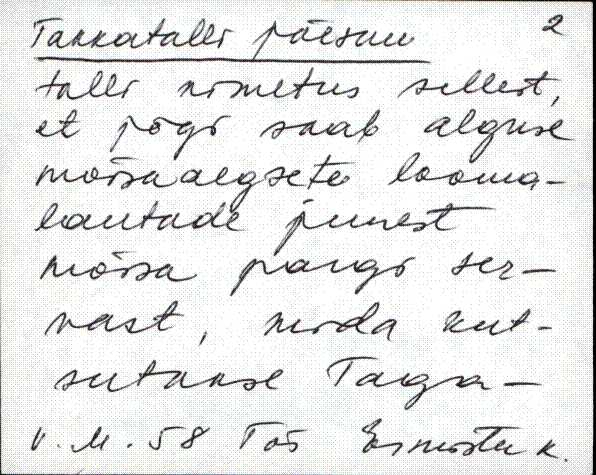 Takkatalli päesuu 2
talli nimetus sellest,
et jõgi saab alguse
mõisaaegsete looma-
lautade juurest
mõisa pargi ser-
vast, mida kut-
sutakse Taga-
V. M. 58 Tõs Ermistu k.